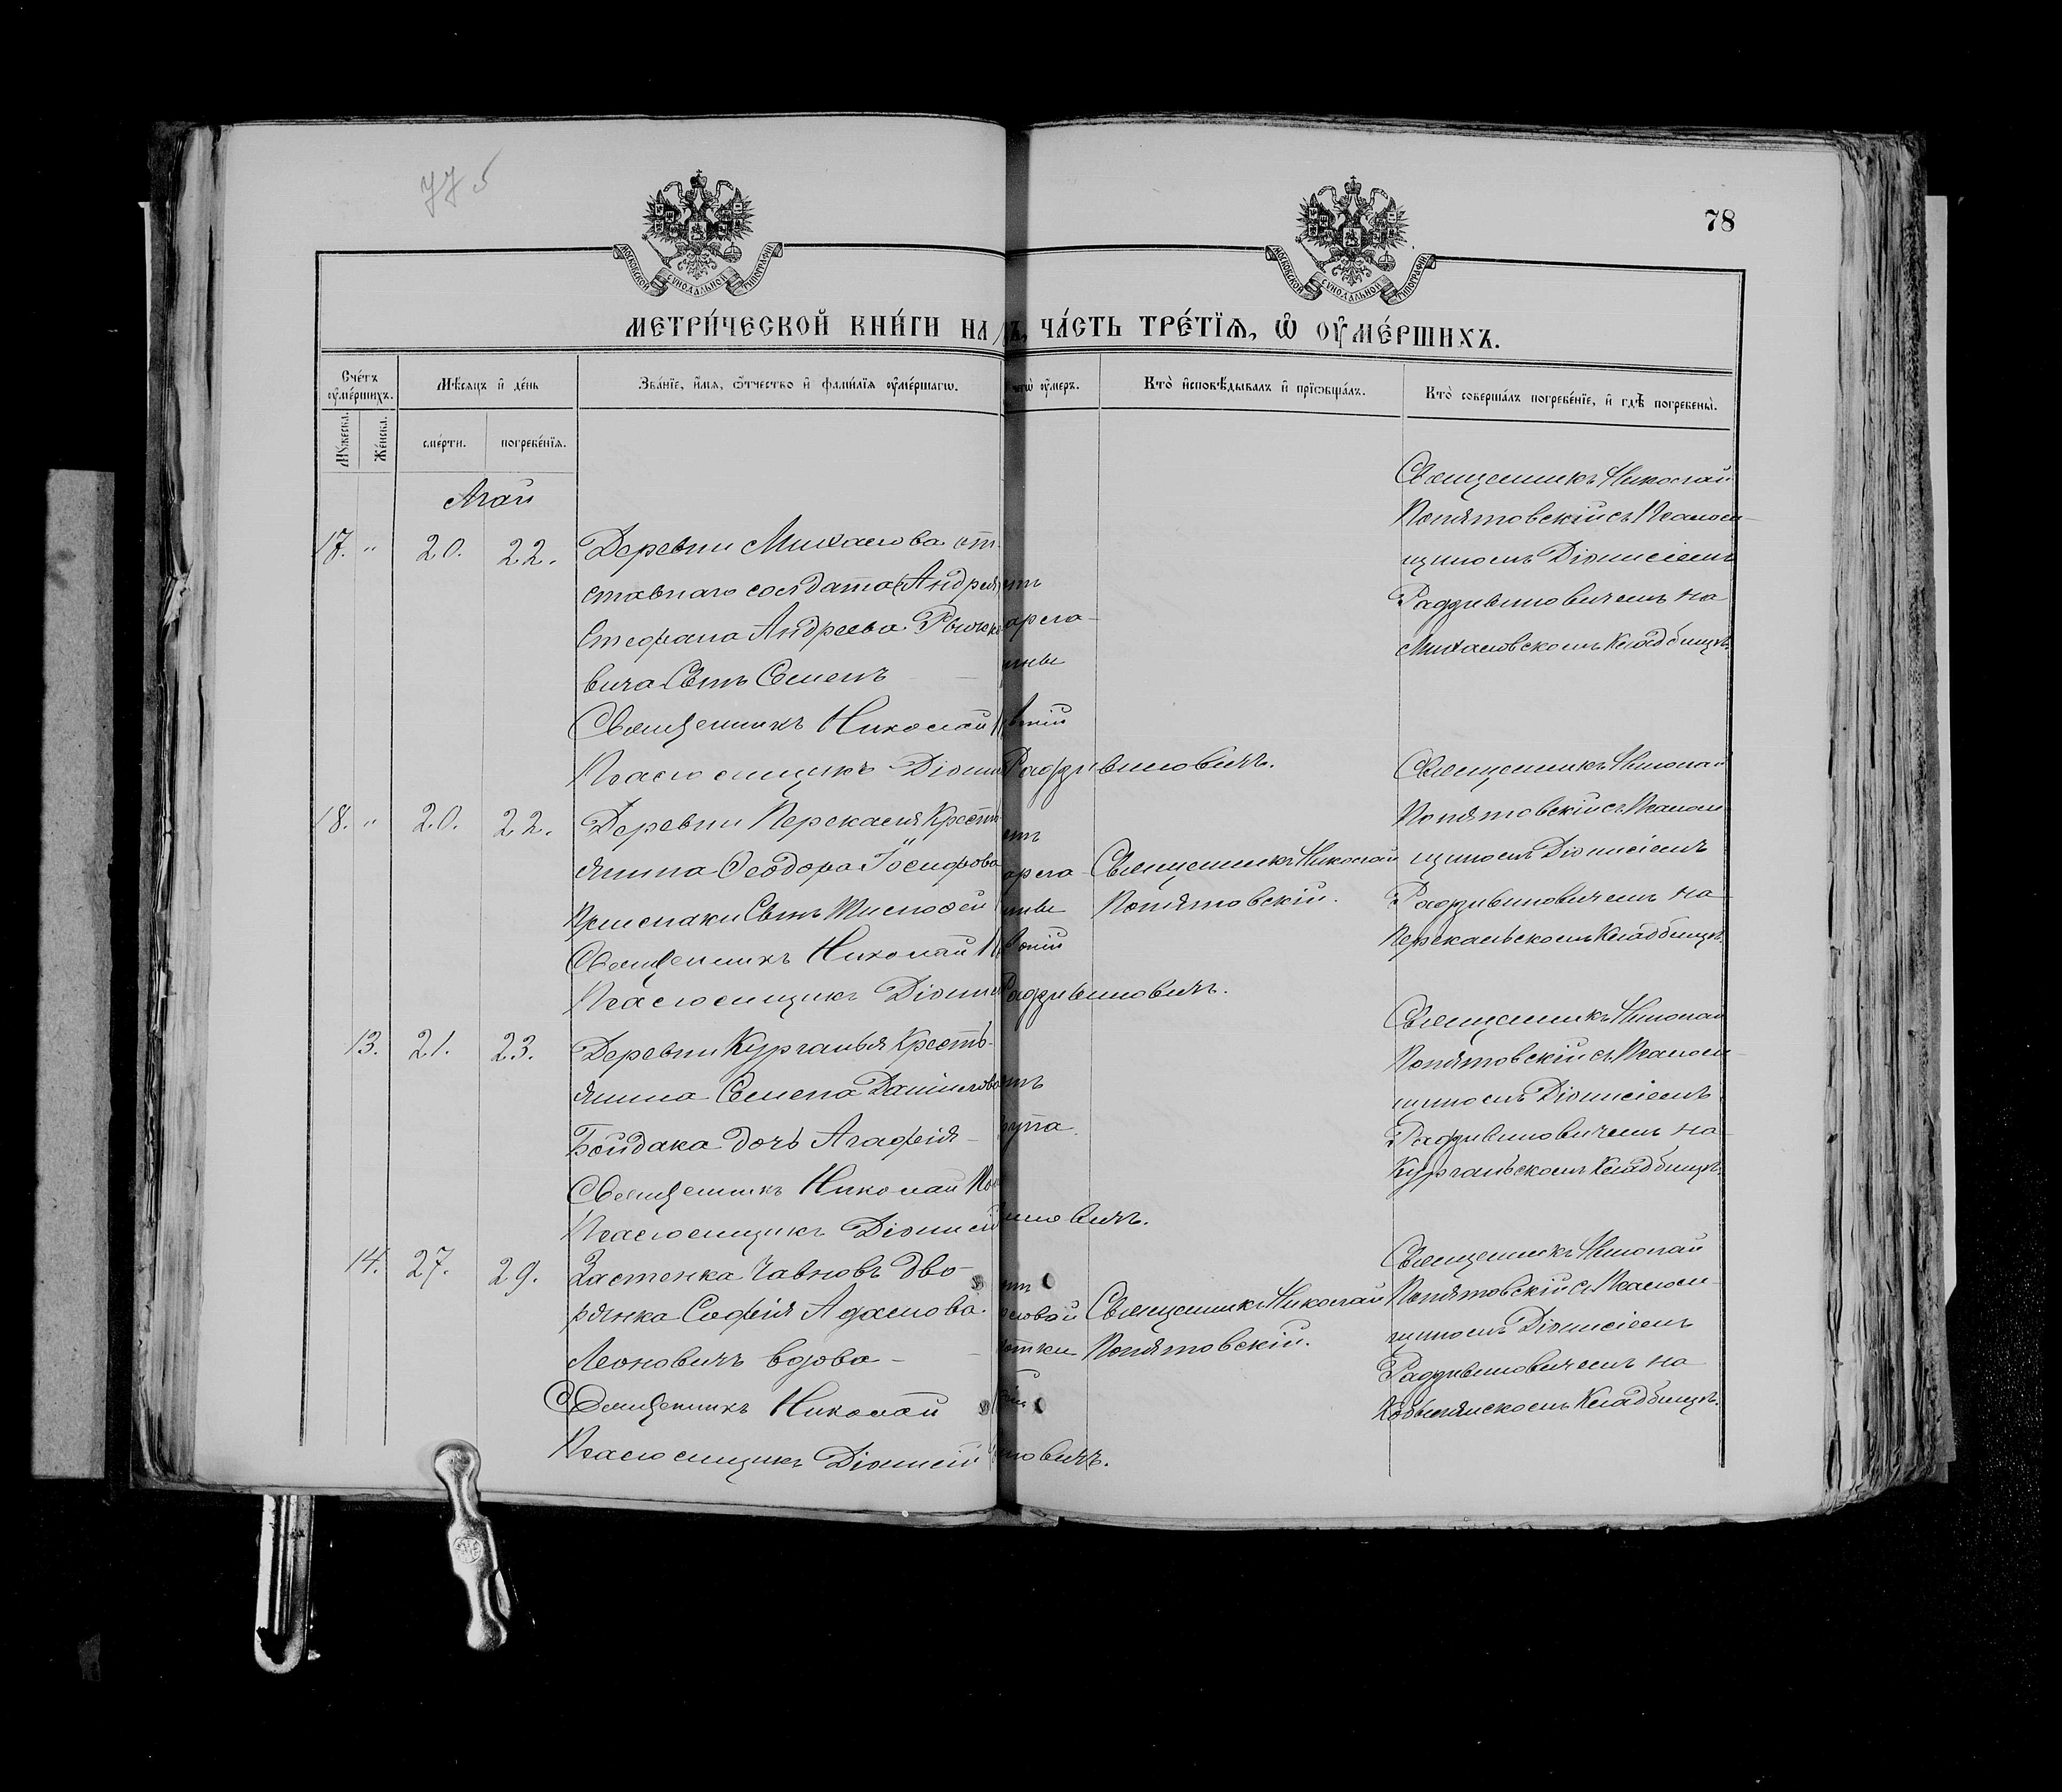 78
МОСКОВСКОЙ СѴНОДАЛЬНОЙ ТИПОГРАФІИ
МОСКОВСКОЙ СѴНОДАЛЬНОЙ ТИПОГРАФІИ
МЕТРИ́ЧЕСКОЙ КНИ́ГИ НА
Ъ, ЧА́СТЬ ТРЕ́ТЇѦ, Ѡ҆ ОУ҆МЕ́РШИХЪ.
Сче́тъ оу҆ме́ршихъ.
Мѣ́сѧцъ и҆ де́нь
Зва́нїе, и҆́мѧ, ѻ҆́тчество и҆ фами́лїѧ оу҆ме́ршагѡ.
чегѡ̀ оу҆́меръ.
Кто̀ и҆сповѣ́дывалъ и҆ прїѡбща́лъ.
Кто̀ соверша́лъ погребе́нїе, и҆ гдѣ̀ погребены̀.
Мꙋ́жеска.
Же́нска.
сме́рти.
погребе́нїѧ.
Май
17. " 20. 22.
Деревни Михалова от-
ставнаго солдата (Андрея)
Стефана Андреева
вича Сынъ Семенъ
Священникъ Николай
Псаломщикъ Діони
Радзивиловичъ.
Священникъ Николай
Понятовскій съ Псалом-
щикомъ Діонисіемъ
Радзивиловичемъ на
Михаловскомъ Кладбищѣ.
18. " 20. 22.
Деревни Перекалья Крестъ-
янина Ѳеодора Іосифова
Сынъ Тимоѳей
Священникъ Николай
Псаломщикъ Діони
Радзивиловичъ.
Священникъ Николай
Понятовскій.
Священникъ Николай
Понятовскій съ Псалом-
щикомъ Діонисіемъ
Радзивиловичемъ на
Перекальскомъ Кладбищѣ.
13. 21. 23.
Деревни Курганья Кресть-
янина Семена Даніилова
Бойдака дочь Агафія
Священникъ Николай По
Псаломщикъ Діонисій
иловичъ.
Священникъ Николай
Понятовскій съ Псалом-
щикомъ Діонисіемъ
Радзивиловичемъ на
Курганьскомъ Кладбищѣ.
14. 27. 29.
Застенка Чавновъ дво-
рянка Софія Адамова
Леоновичъ вдова
Священникъ Николай
Псаломщикъ Діонисій
иловичъ.
Священникъ Николай
Понятовскій.
Священникъ Николай
Понятовскій съ Псалом-
щикомъ Діонисіемъ
Радзивиловичемъ на
Кладбищѣ.